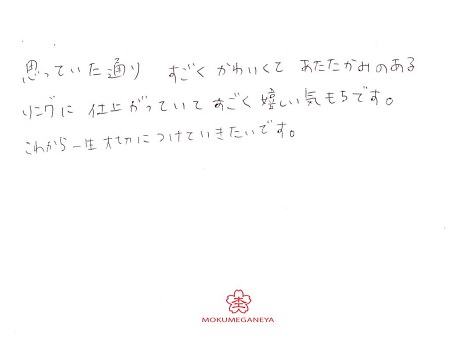 思っていた通り すごく かわいくて あたたかみのある
リングに 仕上がっていて すごく 嬉しい気もちです。
これから一生大切につけていきたいです。
杢
MOKUMEGANEYA